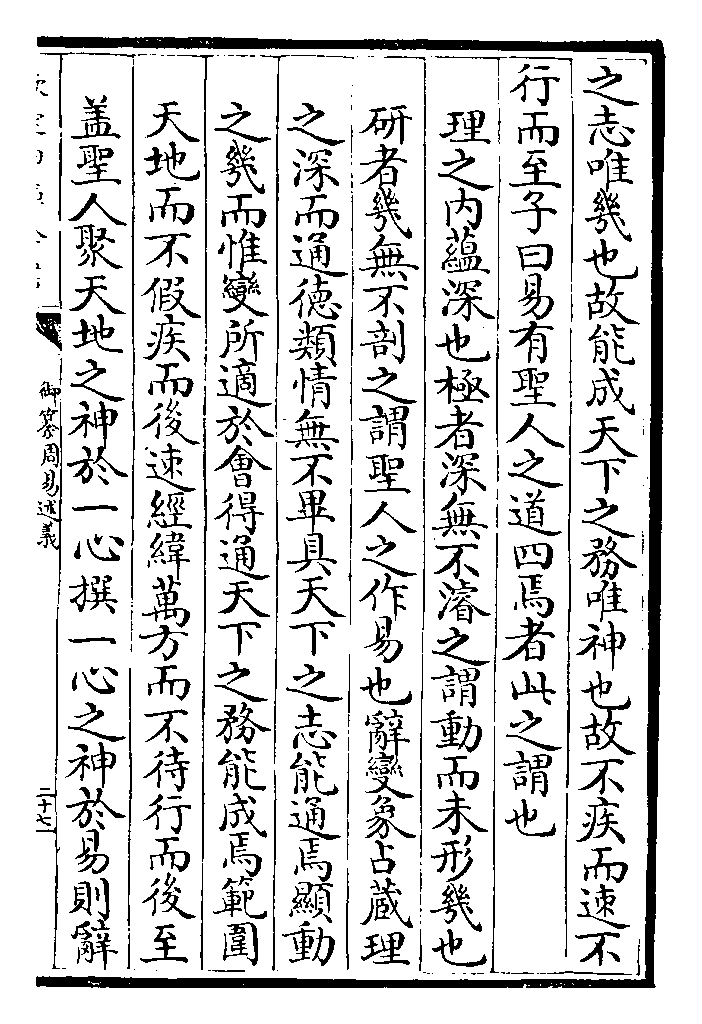 之志唯幾也故能成天下之務唯神也故不疾而速不
行而至子曰易有聖人之道四焉者此之謂也
理之内蘊深也極者深無不濬之謂動而未形幾也
研者幾無不剖之謂聖人之作易也辭變象占蔵理
之深而通德類情無不畢具天下之志能通焉顯動
之幾而惟變所適於會得通天下之務能成焉範圍
天地而不假疾而後速經緯萬方而不待行而後至
盖聖人聚天地之神於一心撰一心之神於易則辭
御纂周易述義
二十七